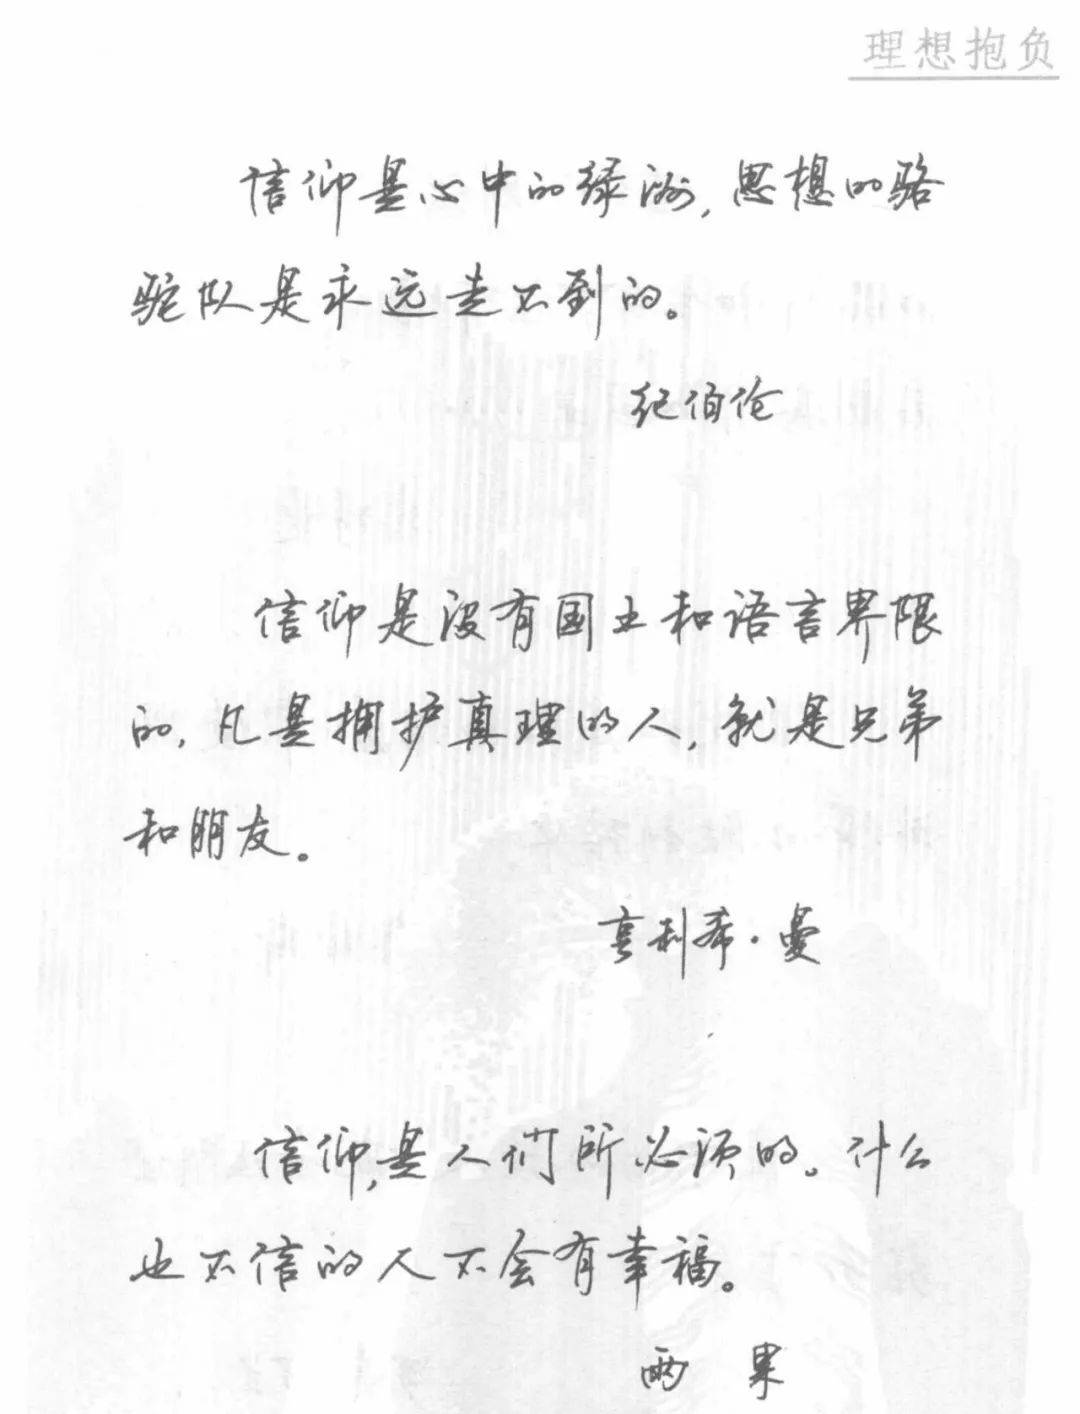 理想抱负
信仰是心中的绿洲，思想的骆
驼队是永远走不到的。
纪伯伦
信仰是没有国土和语言界限
的，凡是拥护真理的人，就是兄弟
和朋友。
亨利希·曼
信仰，是人们所必须的。什么
也不信的人不会有幸福。
雨 果